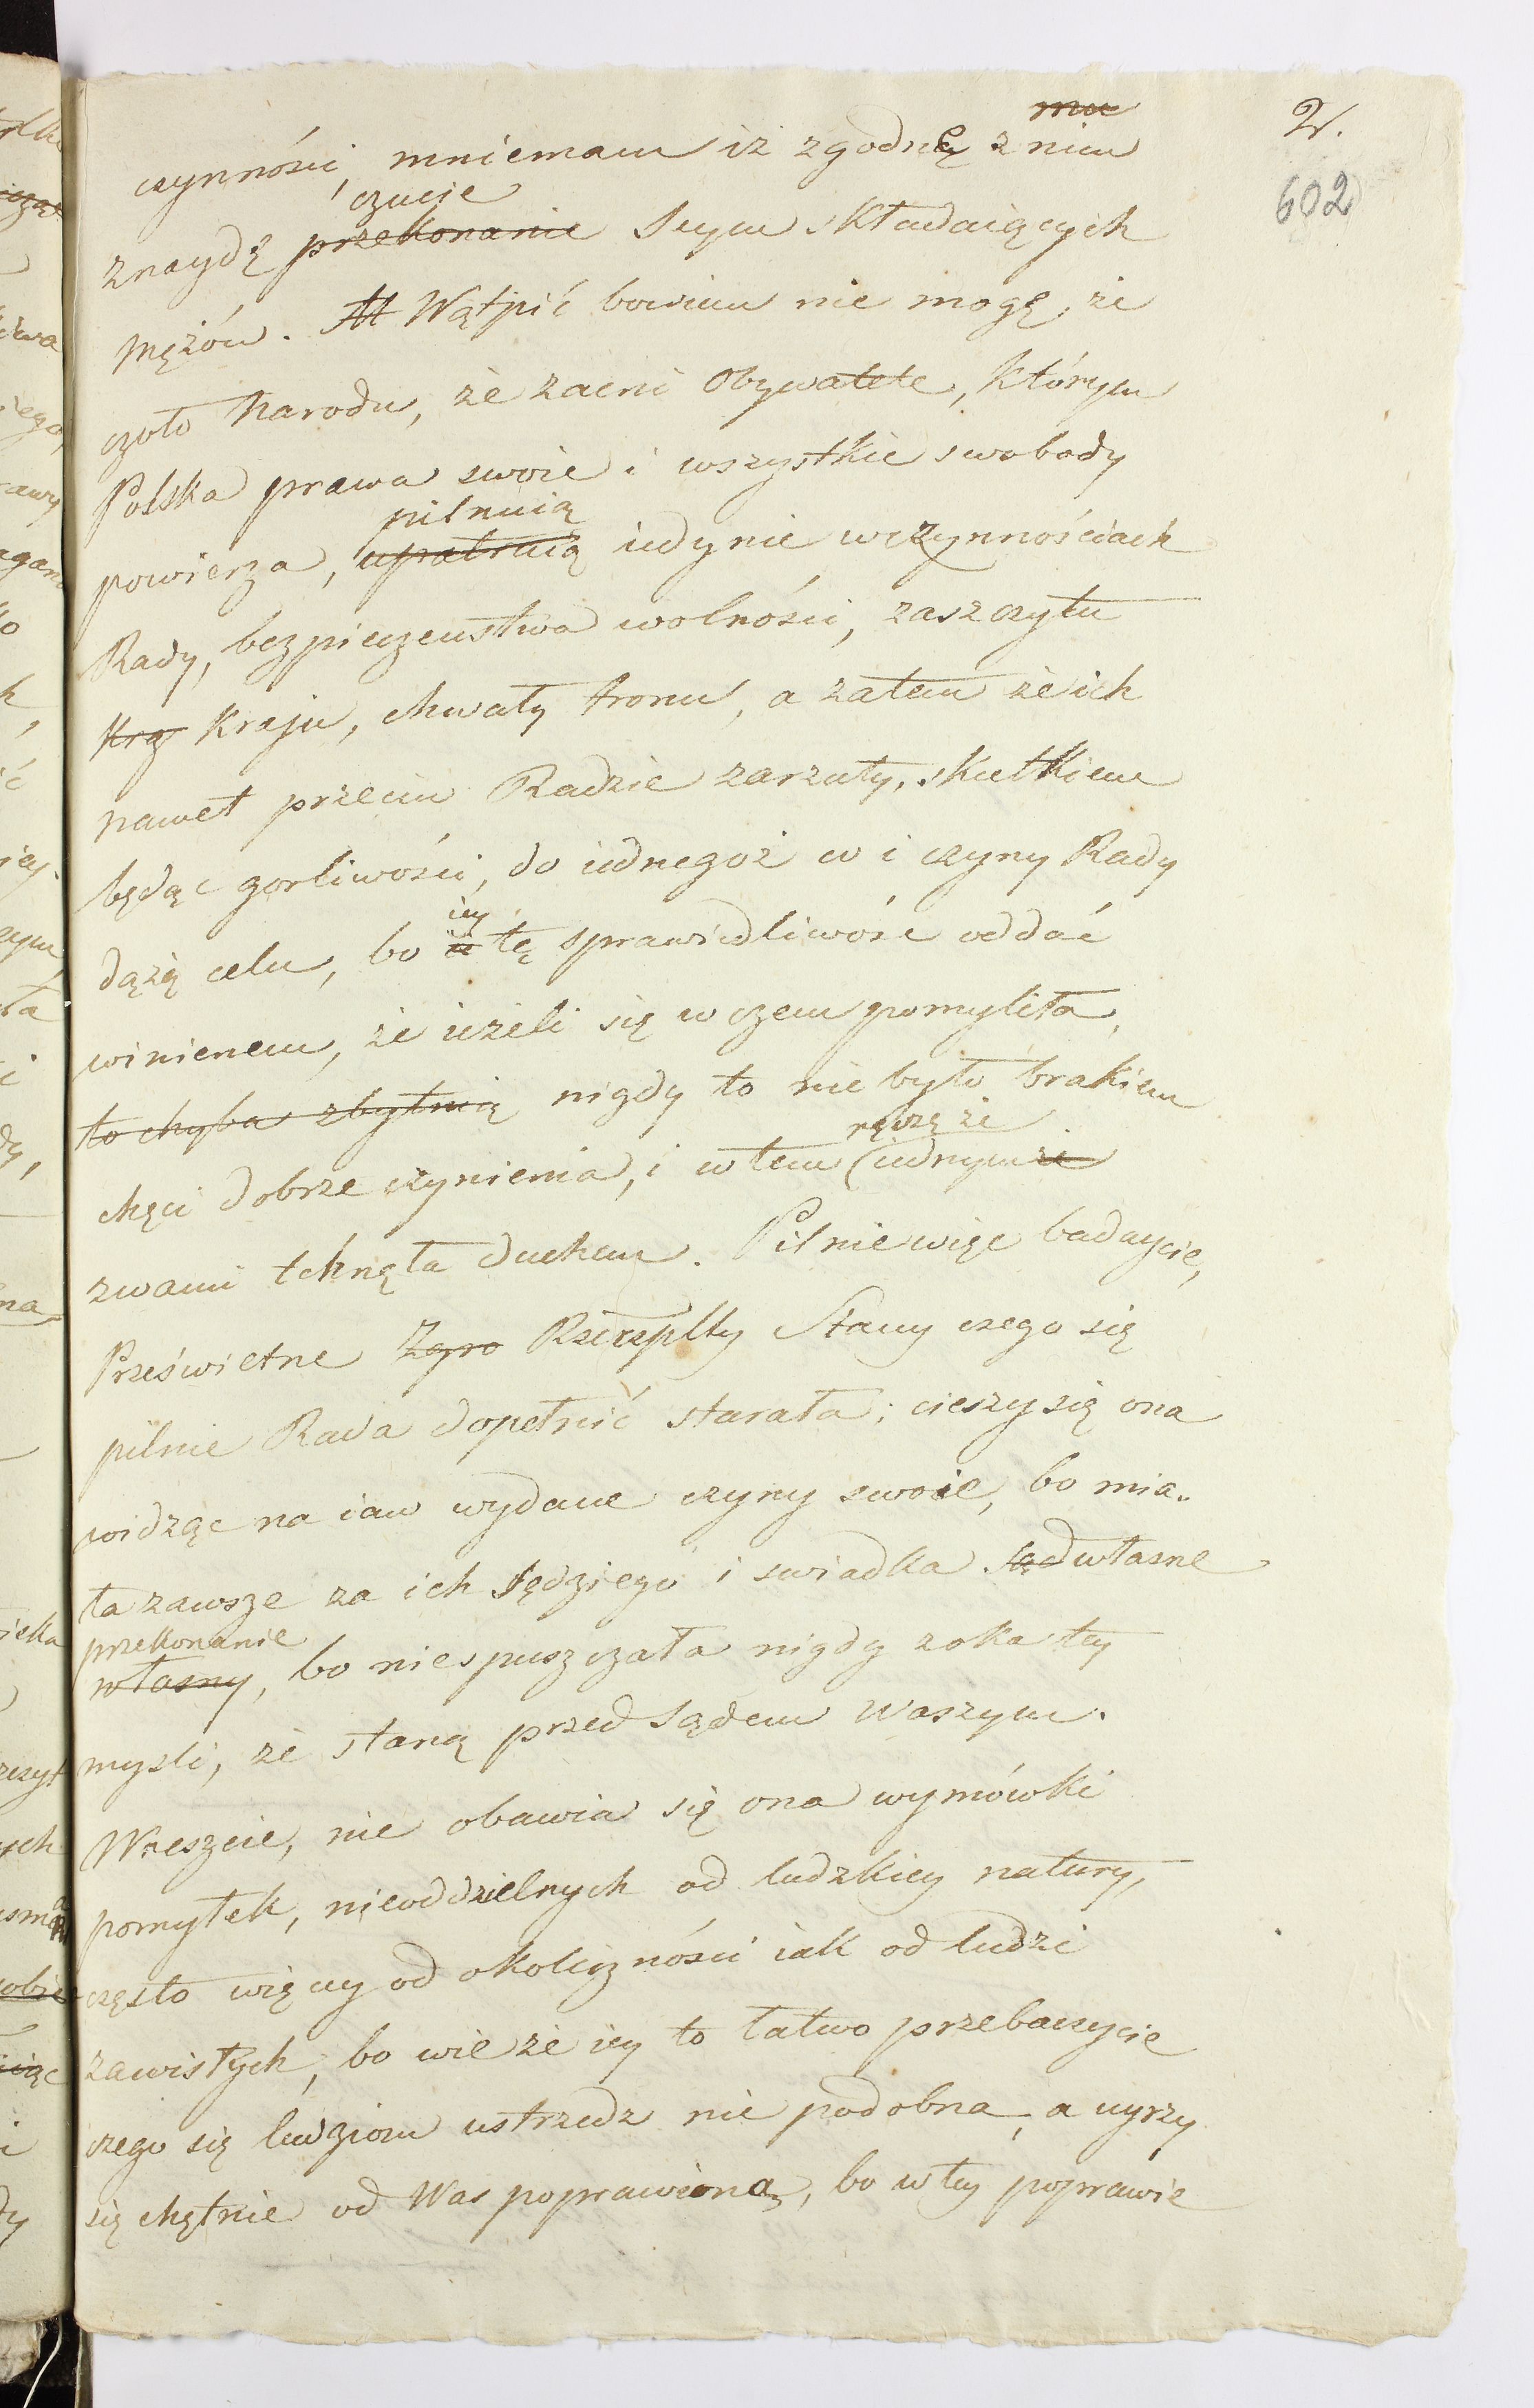 2.
602
mu
czynności, mniemam iż zgodne z nim
czucie
znaydę przekonanie Seym składaiących
mężów. M Wątpić bowiem nie mogę, że
czoło Narodu, że zacni Obywatele, którym
Polska prawa swoie i wszystkie swobody
pilnuią
powierza, upatruią iedynie w czynnościach
Rady, bezpieczeństwa wolności, zaszczytu
Kra Kraju, chwały tronu, a zatem że ich
nawet przeciw Radzie zarzuty, skutkiem
będąc gorliwości, do iednegoż co i czyny Rady
iey
dążą celu, bo ie tę sprawiedliwość oddać
winienem, że ieżeli się w czem pomyliła,
to chyba zbytnią nigdy to nie było brakiem
ręczę że
chęci dobrze czynienia, i w tem iednym że
z wami tchnęła duchem. Pilnie więc badaycie,
Prześwietne Zgro Rzeczplty Stany czego się
pilnie Rada dopełnić starała; cieszy się ona
widząc na iaw wydane czyny swoie, bo mia-
ła zawsze za ich sędziego i swiadka sąd własne
przekonanie
własny, bo niespuszczała nigdy z oka tey
mysli, że staną przed Sądem Waszym.
Wreszcie, nie obawia się ona wymówki
pomyłek, nieoddzielnych od ludzkiey natury,
często więcey od okoliczności iak od ludzi
zawisłych, bo wie że iey to łatwo przebaczycie
czego się ludziom ustrzedz nie podobna, a uyrzy
się chętnie od Was poprawioną, bo w tey poprawie